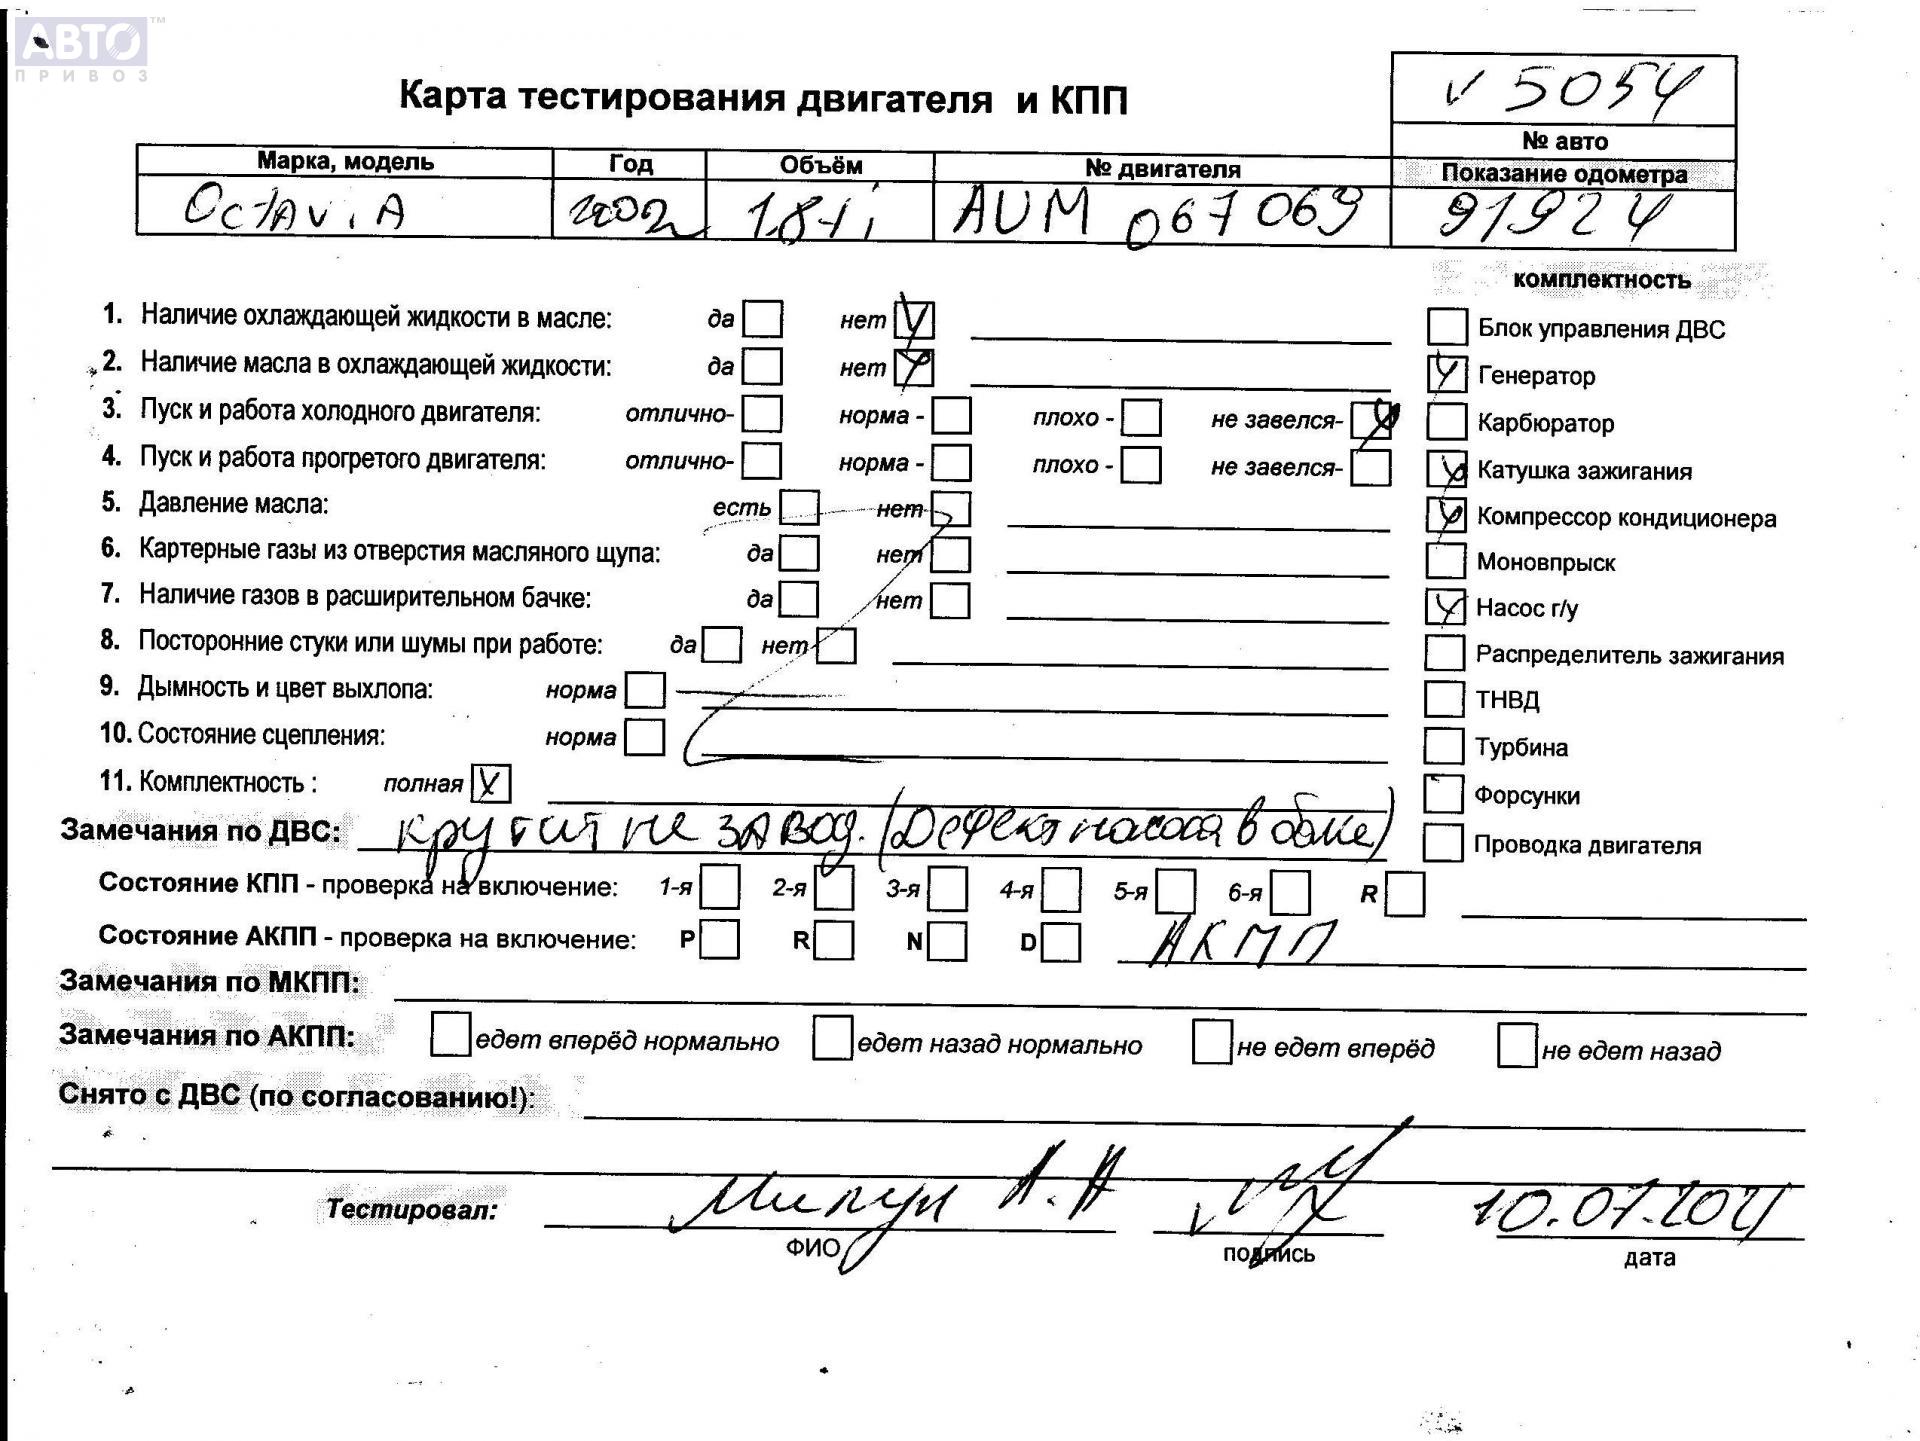 АВТО™
ПРИВОЗ
Карта тестирования двигателя и КПП
v 5054
№ авто
Марка, модель Год Объём № двигателя Показание одометра
OctAviA 2002 1.8ti AUM 067069 91924
комплектность
1. Наличие охлаждающей жидкости в масле: да нет V
Блок управления ДВС
2. Наличие масла в охлаждающей жидкости: да нет V
Генератор
3. Пуск и работа холодного двигателя: отлично- норма - плохо - не завелся- V
Карбюратор
4. Пуск и работа прогретого двигателя: отлично- норма - плохо - не завелся-
Катушка зажигания
5. Давление масла: есть нет
Компрессор кондиционера
6. Картерные газы из отверстия масляного щупа: да нет
Моновпрыск
7. Наличие газов в расширительном бачке: да нет
Насос г/у
8. Посторонние стуки или шумы при работе: да нет
Распределитель зажигания
9. Дымность и цвет выхлопа: норма
ТНВД
10. Состояние сцепления: норма
Турбина
11. Комплектность : полная
Форсунки
Замечания по ДВС: крутит не завод. (Дефект насоса в баке)
Проводка двигателя
Состояние КПП - проверка на включение: 1-я 2-я 3-я 4-я 5-я 6-я R
Состояние АКПП - проверка на включение: P R N D АКПП
Замечания по МКПП:
Замечания по АКПП: едет вперёд нормально едет назад нормально не едет вперёд не едет назад
Снято с ДВС (по согласованию!):
Тестировал: А.А 10.07.2021
ФИО подпись дата